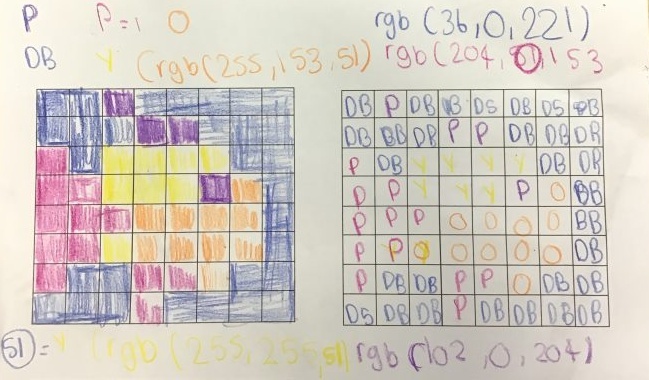 P P=1 O rgb (36,0,221)
DB Y (rgb(255,153,51) rgb(204,51,153
DB P DB B DS DB DS DB
DB BB DB P P DB DB DR
P DB Y Y Y Y DB DR
P P Y Y Y P O BB
P P P O O O O BB
P P O O O O O DB
P DB DB P P O DB DB
DS DB DB P DB DB DB DB
51 = Y (rgb (255,255,51) rgb (102,0,204)